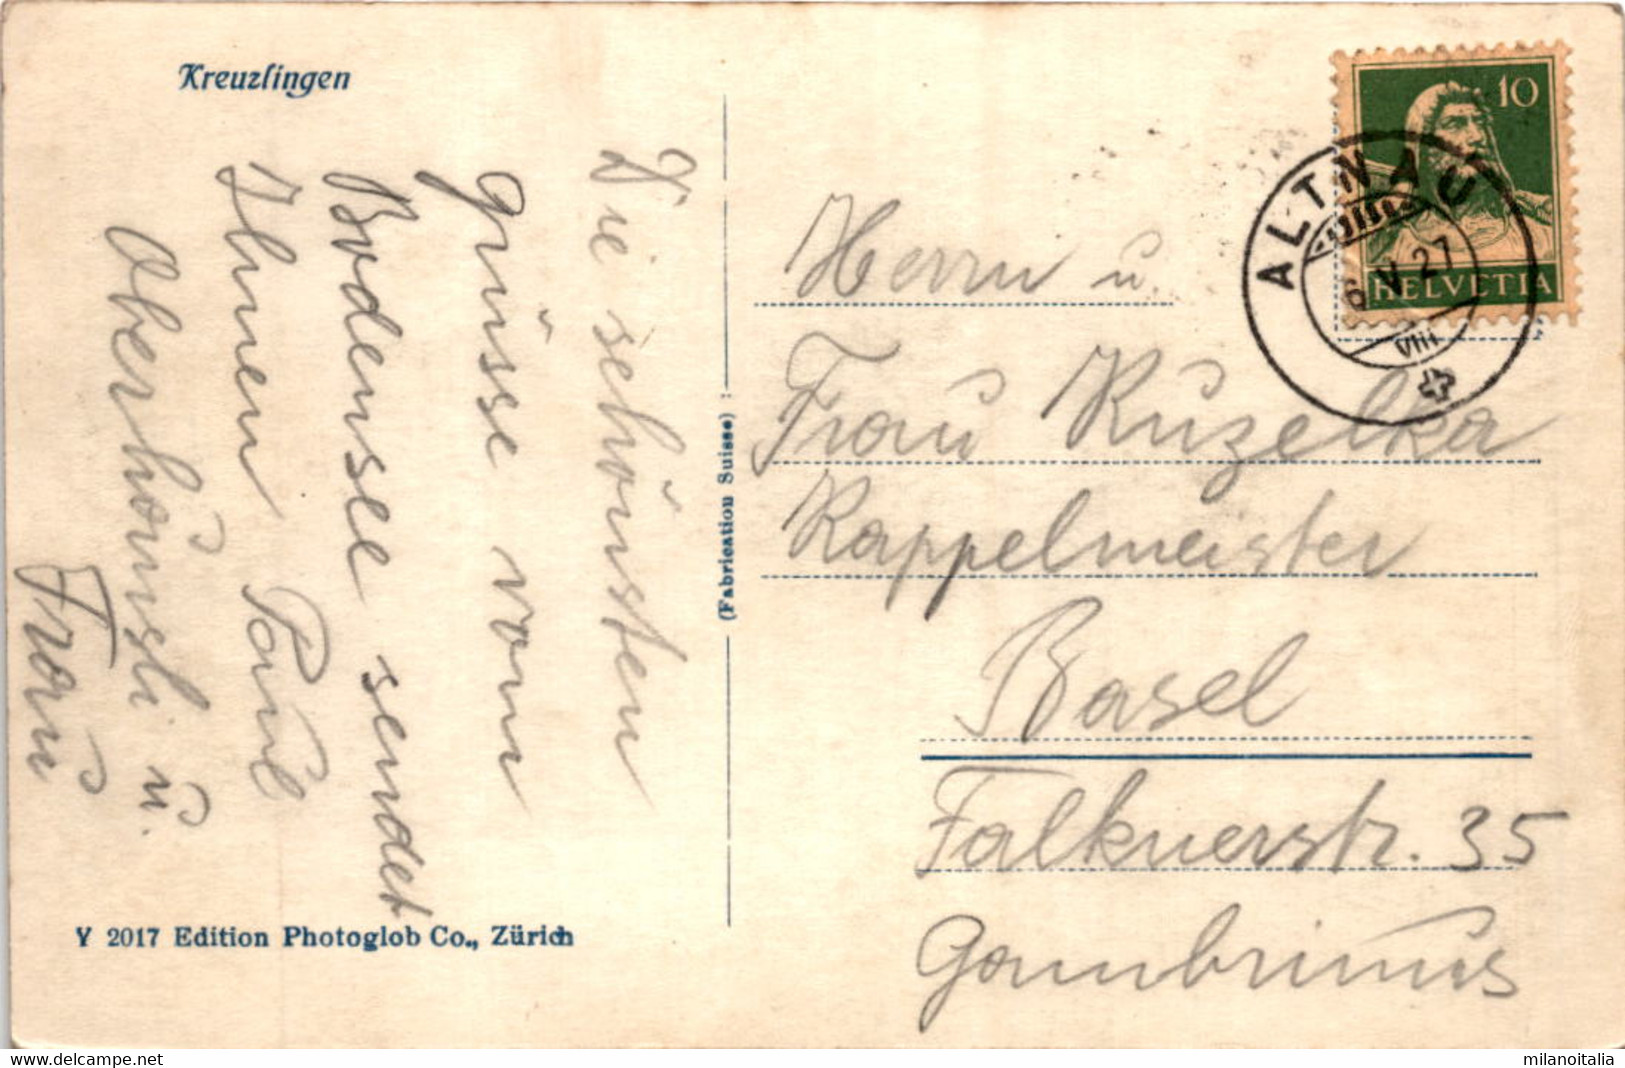 Kreuzlingen
Die schönsten
Grüsse vom
Bodensee sendet
Ihnen Paul
Oberhänsli u.
Frau
Y 2017 Edition Photoglob Co., Zürich
(Fabrication Suisse)
10
HELVETIA
ALTNAU
6. V. 27
VIII
Herrn u.
Frau Kuzelka
Kappelmeister
Basel
Falknerstr. 35
Gambrinus
www.delcampe.net
milanoitalia